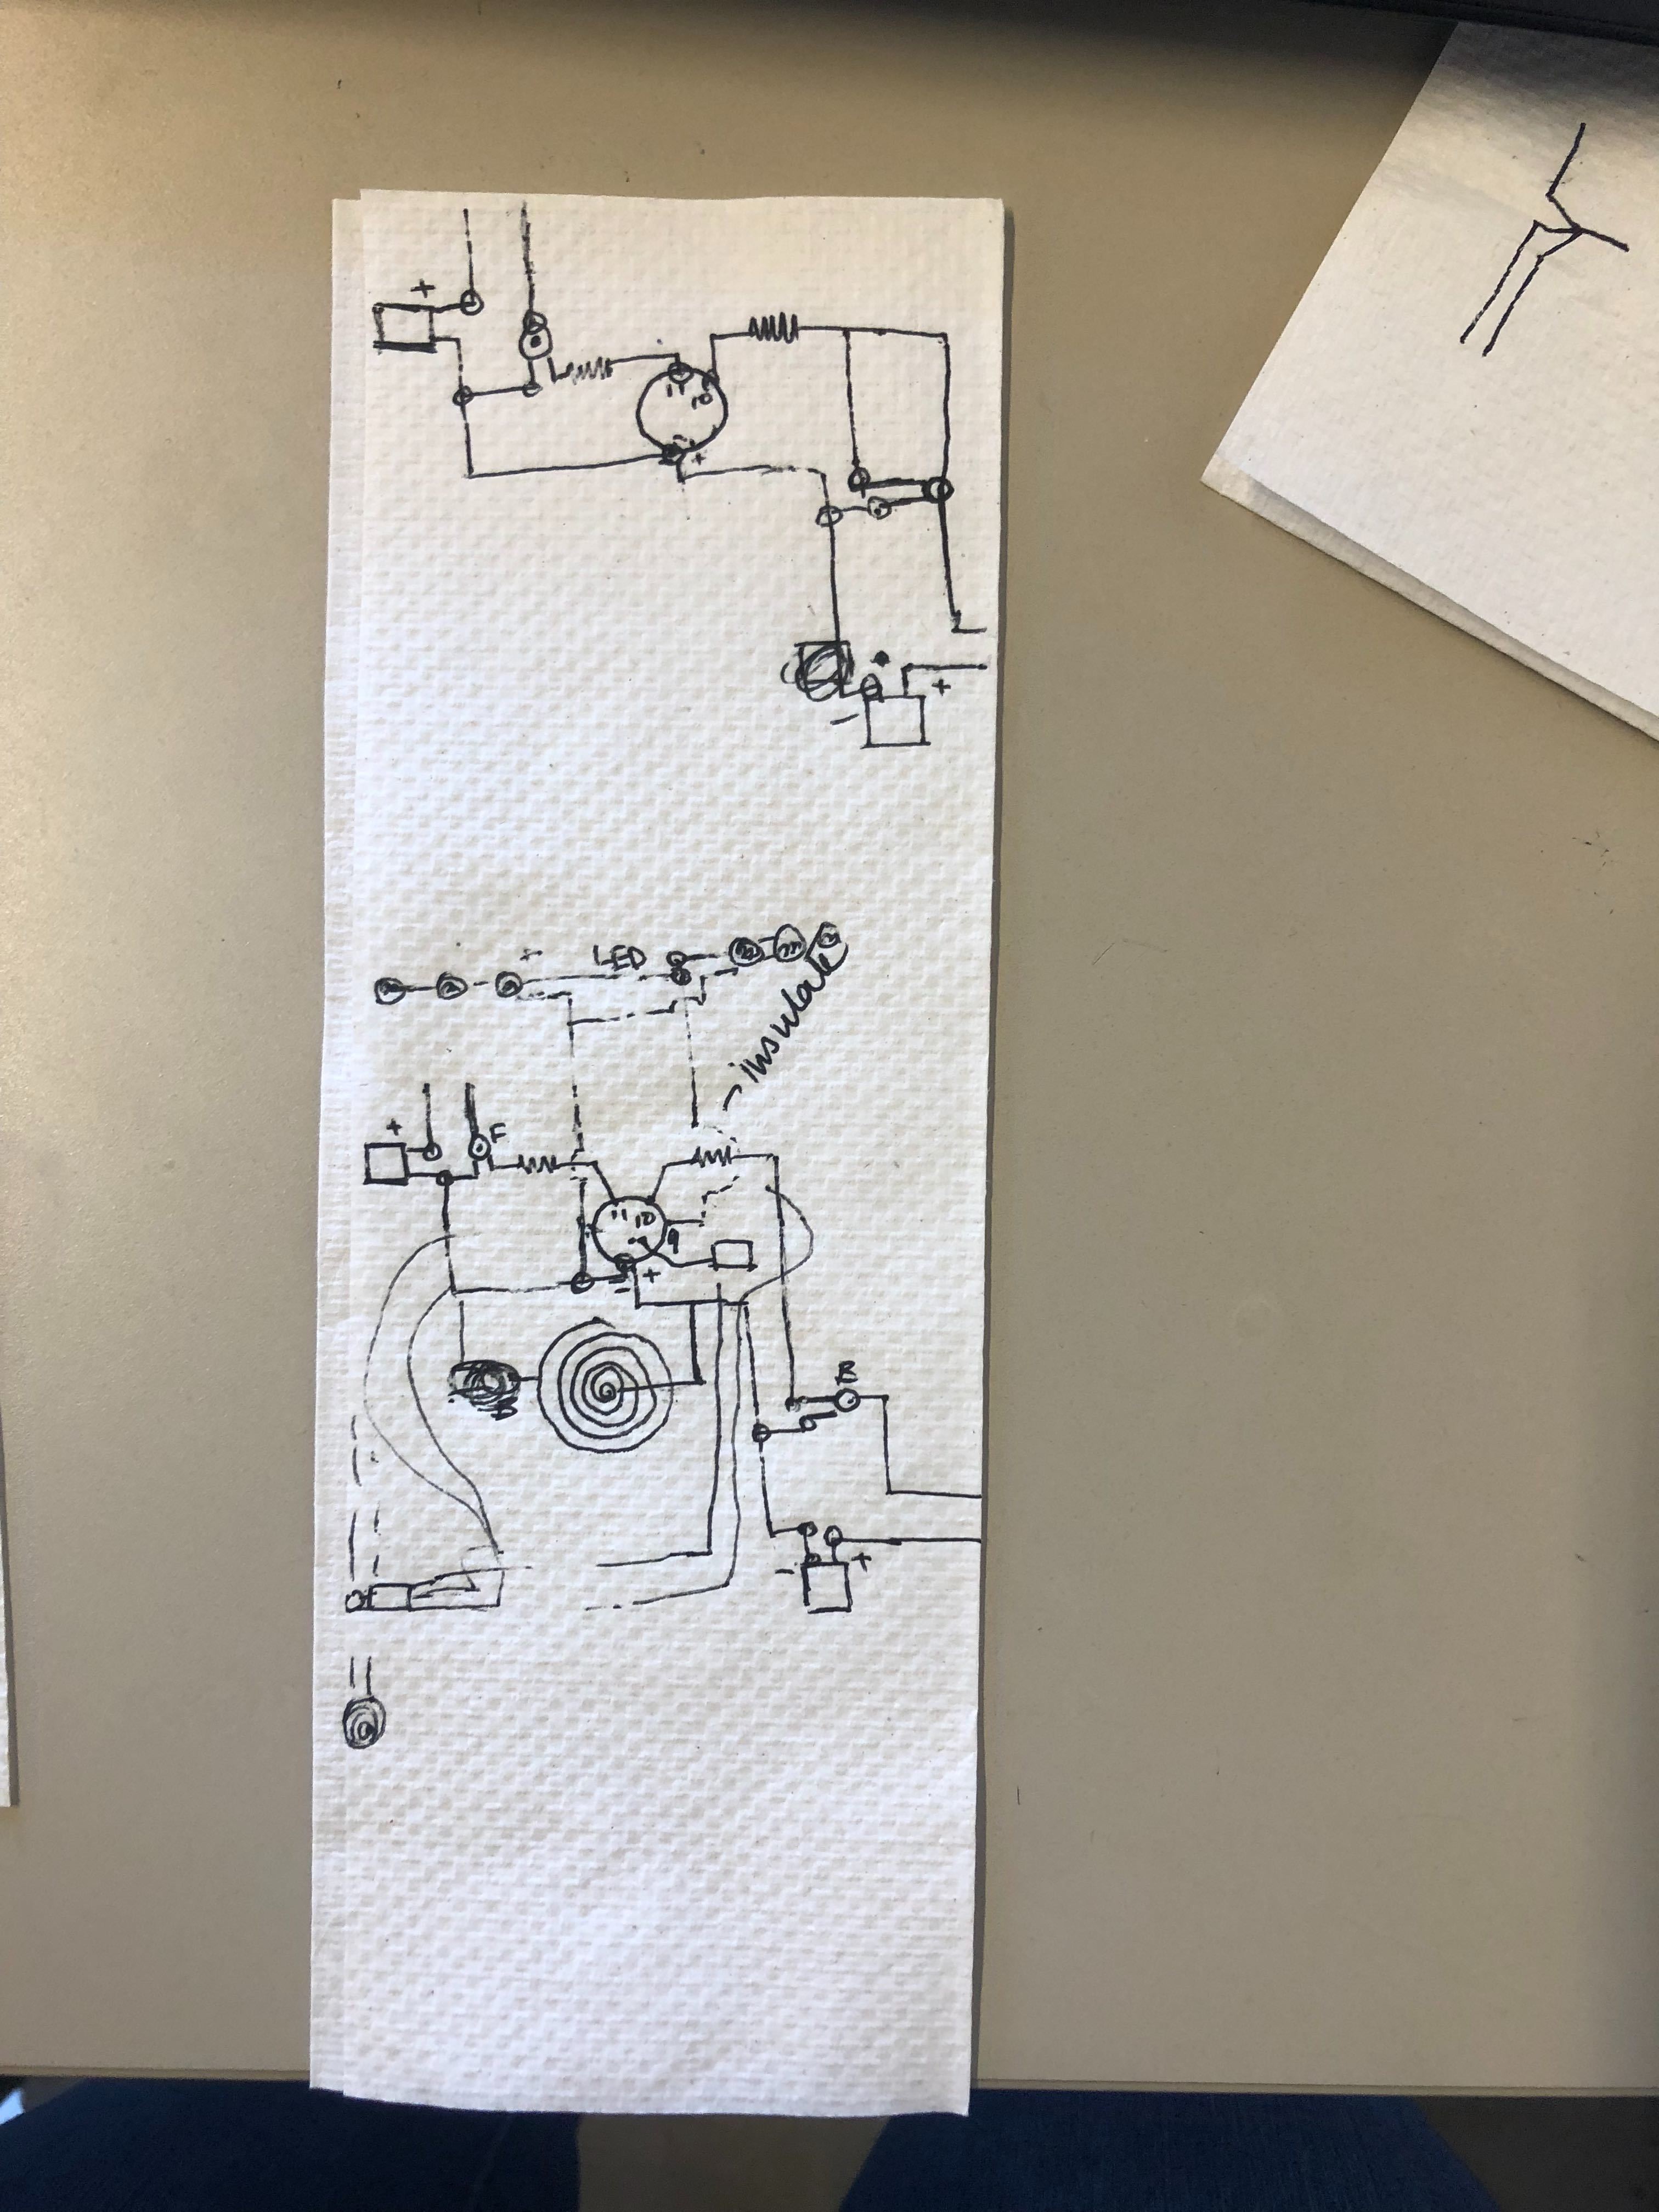 +
11 10
- +
+
-
+ LED
insulate
+ F
11 10
9
- +
B
B
- +